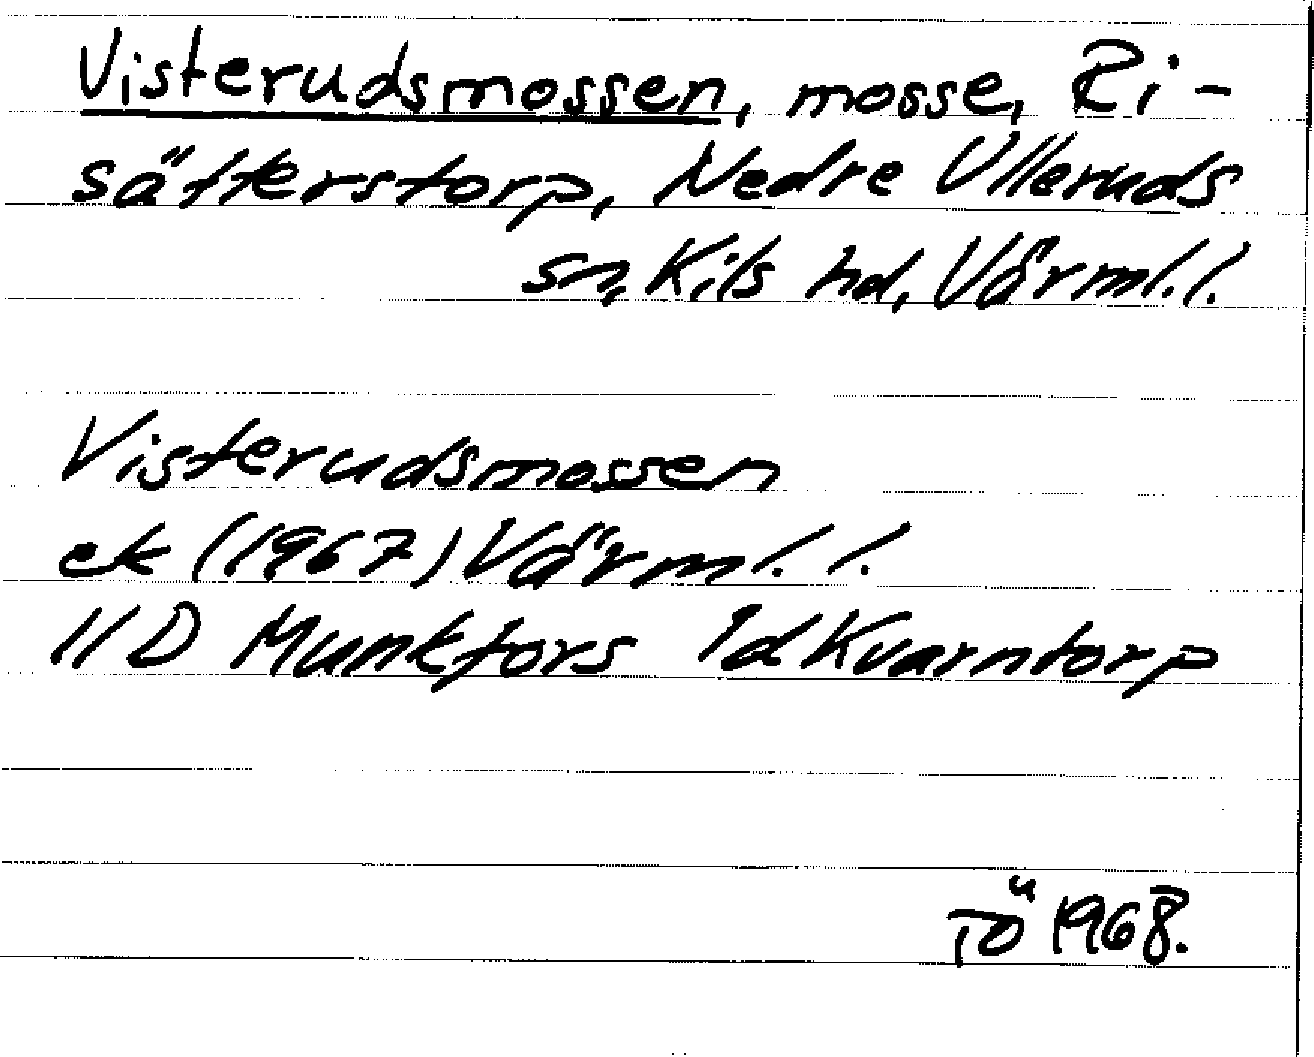 Visterudsmossen, mosse, Ri-
sätterstorp, Nedre Ulleruds
sn, Kils hd, Värml. l.
Visterudsmossen
ek (1967) Värml. l.
11D Munkfors 1d Kvarntorp
TÖ 1968.